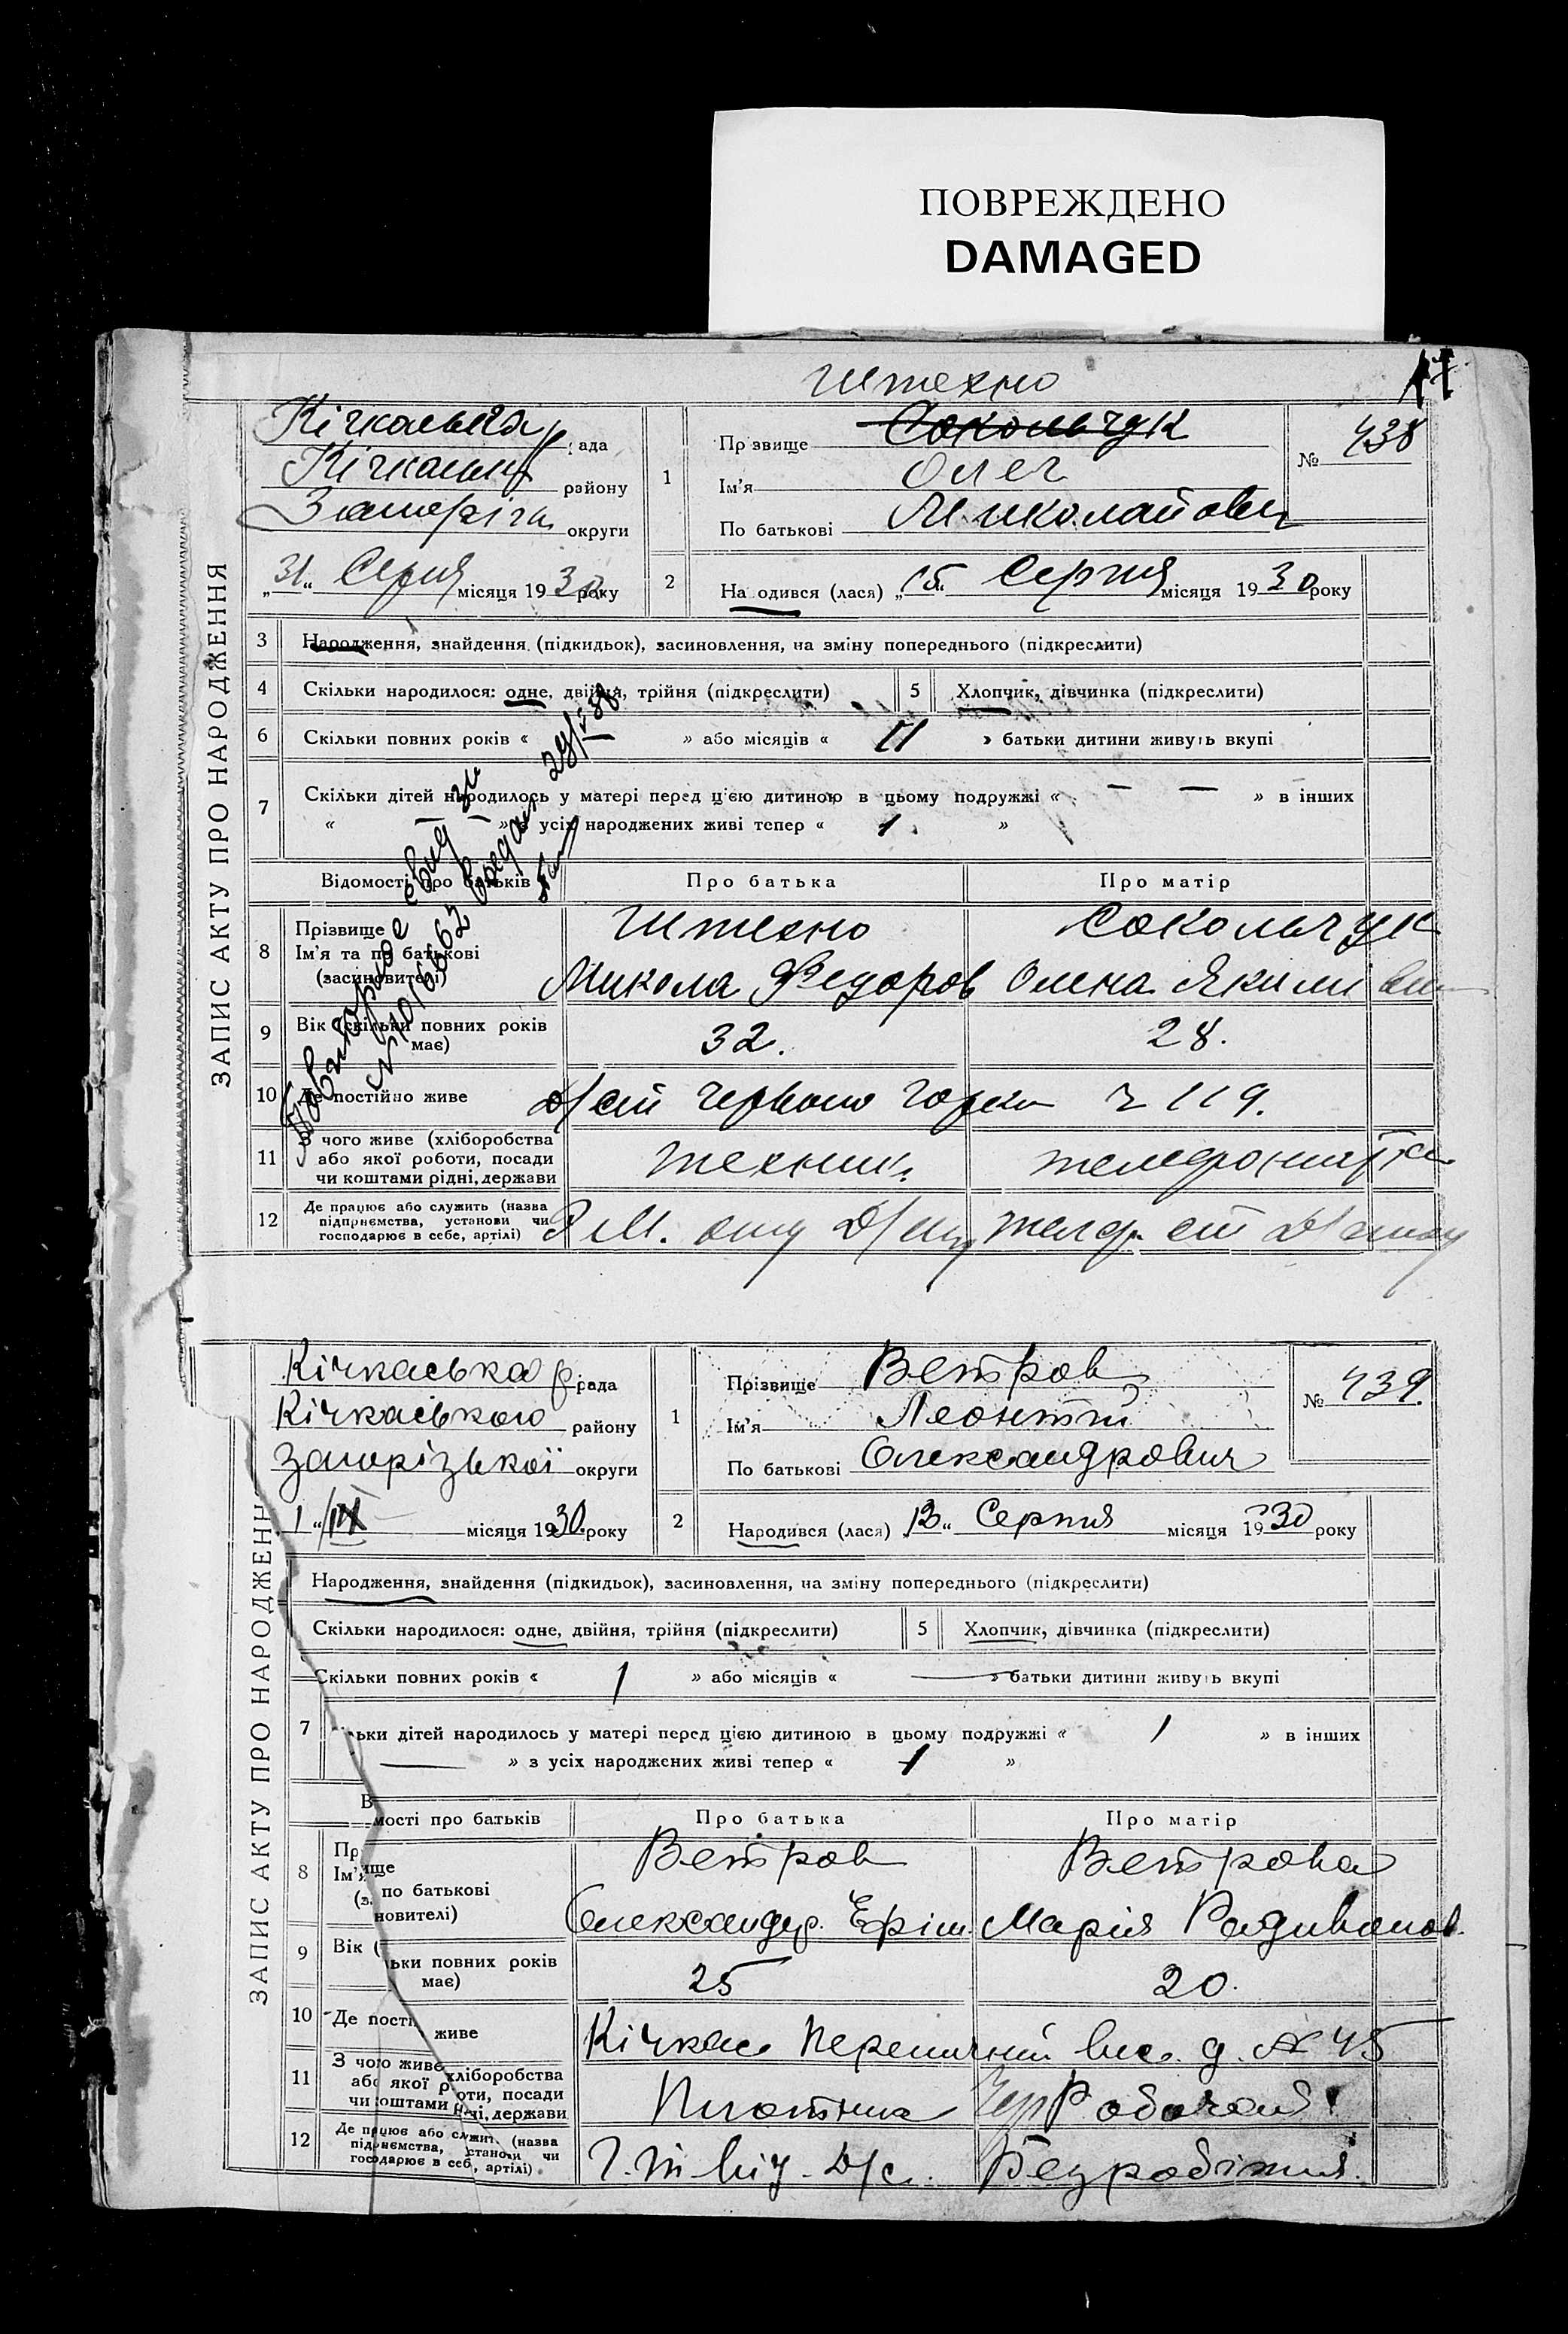 ПОВРЕЖДЕНО
DAMAGED
Штехно
Кічкаська р рада
Кічкаськ району
округи
„31“ Серпня місяця 1930 року
1
Прізвище Сокольчук
Ім’я Олег
По батькові Миколайович
№ 438
2
Народився (лася) „15“ Серпня місяця 1930 року
ЗАПИС АКТУ ПРО НАРОДЖЕННЯ
3 Народження, знайдення (підкидьок), засиновлення, на зміну попереднього (підкреслити)
4 Скільки народилося: одне, двійня, трійня (підкреслити) 5 Хлопчик, дівчинка (підкреслити)
6 Скільки повних років « » або місяців « 11 » батьки дитини живуть вкупі
7 Скільки дітей народилось у матері перед цією дитиною в цьому подружжі « — — » в інших
« » з усіх народжених живі тепер « 1 »
Відомості про батьків Про батька Про матір
8 Прізвище Штехно Сокольчук
Ім’я та по батькові Микола Федоров Олена Якимівна
(засиновителі)
9 Вік (скільки повних років має) 32. 28.
10 Де постійно живе
ч 119.
11 З чого живе (хліборобства
або якої роботи, посади технік. телефоністка
чи коштами рідні, держави
12 Де працює або служить (назва
підприємства, установи чи
господарює в себе, артілі)
Кічкаська р рада
Кічкаського району
Запорізької округи
1 „IX місяця 1930 року
1
Прізвище Ветров
Ім’я Леонтій
По батькові Олександрович
№ 439.
2
Народився (лася) 13 „ Серпня місяця 1930 року
ЗАПИС АКТУ ПРО НАРОДЖЕНН
Народження, знайдення (підкидьок), засиновлення, на зміну попереднього (підкреслити)
Скільки народилося: одне, двійня, трійня (підкреслити) 5 Хлопчик, дівчинка (підкреслити)
Скільки повних років « 1 » або місяців « — » батьки дитини живуть вкупі
7 ьки дітей народилось у матері перед цією дитиною в цьому подружжі « 1 » в інших
— » з усіх народжених живі тепер « 1 »
В мості про батьків Про батька Про матір
8 Пр ище Ветров Ветрова
Ім’я по батькові Олександр. Марія
(з новителі)
9 Вік ( ьки повних років має) 25 20.
10 Де пості живе Кічкас вис. д. № 45
11 З чого живе хліборобства
або якої р оти, посади
чи коштами ні, держави
12 Де працює або служить (назва
підприємства, станови чи
господарює в себ , артілі) Безробітня.